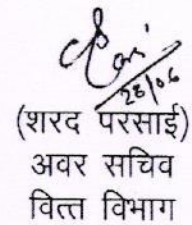 28/06
(शरद परसाई)
अवर सचिव
वित्त विभाग